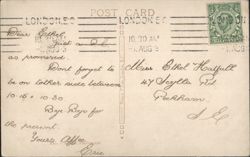 POST CARD
LONDON. E.C
LONDON. E.C
10.30 AM
AUG 8
Dear Ethel.
Just a P.C.
as promised.
Dont forget to
be on t'other side between
10.15 & 10.30
Bye Bye for
the present.
Yours Affec.
Ernie
Miss Ethel Halfull
47 Scylla Rd
Peckham.
S.E